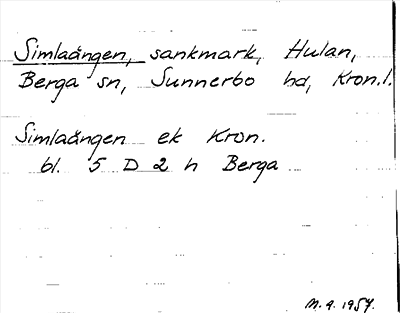 Simlaängen, sankmark, Hulan,
Berga sn, Sunnerbo hd, Kron.l.
Simlaängen ek Kron.
bl. 5 D 2 h Berga
M.A. 1957.